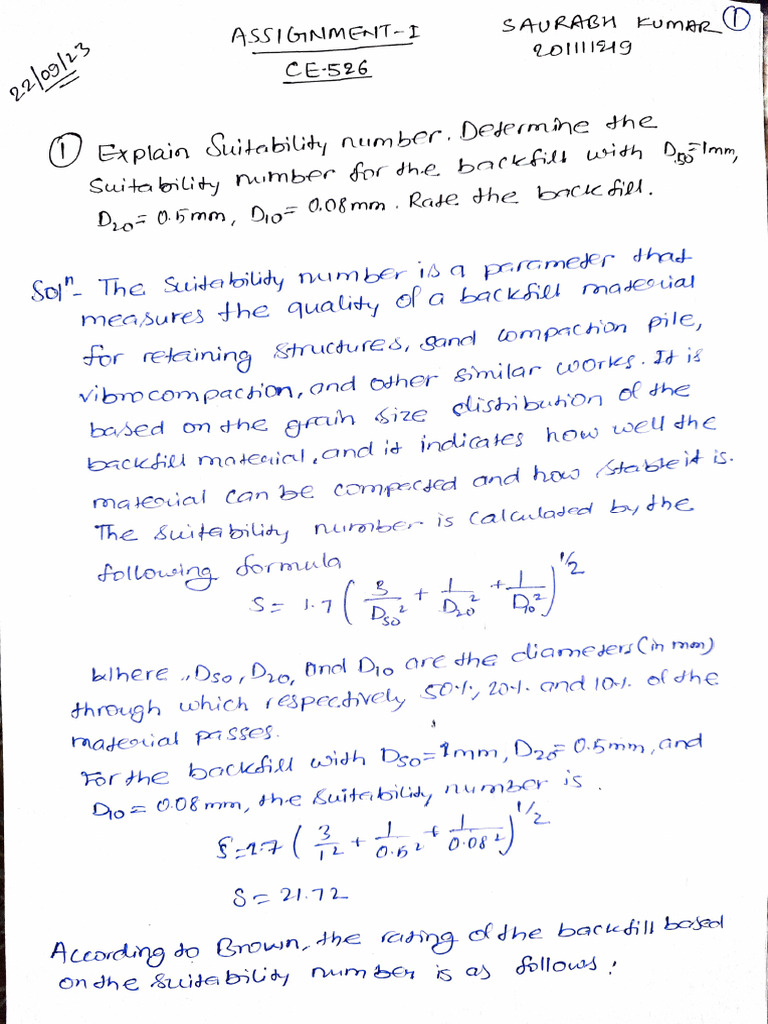 ASSIGNMENT-I SAURABH KUMAR 1
22/09/23 CE-526 201111219
① Explain Suitability number. Determine the
Suitability number for the backfill with D50=1mm,
D20= 0.5mm, D10= 0.08mm. Rate the backfill.
Solⁿ- The Suitability number is a parameter that
measures the quality of a backfill material
for retaining structures, sand compaction pile,
vibrocompaction, and other similar works. It is
based on the grain size distribution of the
backfill material, and it indicates how well the
material can be compacted and how stable it is.
The Suitability number is calculated by the
following formula
S= 1.7 (3/D50² + 1/D20² + 1/D10²)^1/2
Where, D50, D20, and D10 are the diameters (in mm)
through which respectively 50%, 20% and 10% of the
material passes.
For the backfill with D50=1mm, D20=0.5mm, and
D10= 0.08mm, the suitability number is.
S=1.7 (3/1² + 1/0.5² + 1/0.08²)^1/2
S= 21.72
According to Brown, the rating of the backfill based
on the suitability number is as follows: